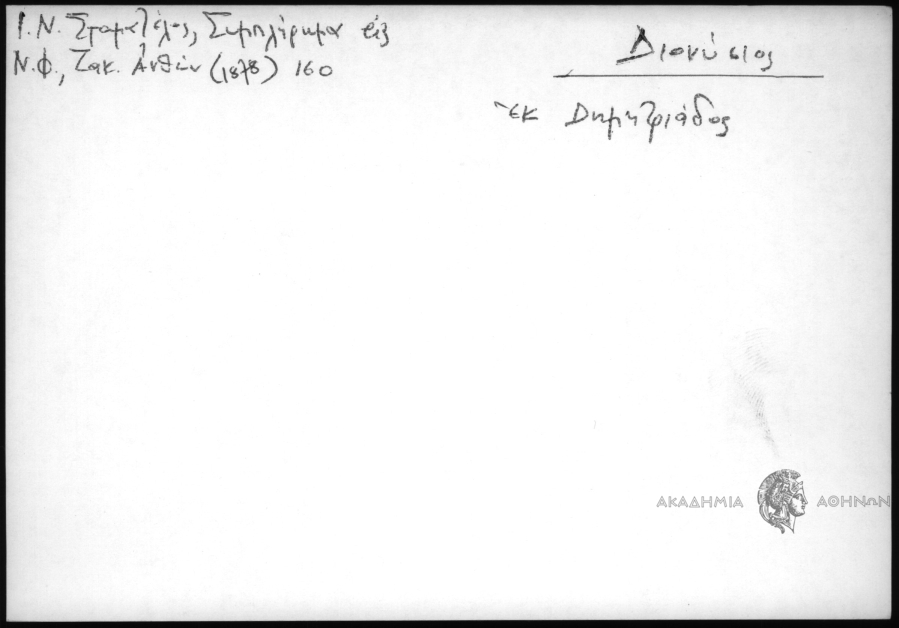 Ι. Ν. Σταματέλος, Συμπλήρωμα εἰς
Ν.Φ., Ζακ. Ἀνθών (1878) 160
Διονύσιος
ἐκ Δημητριάδος
ΑΚΑΔΗΜΙΑ ΑΘΗΝΩΝ